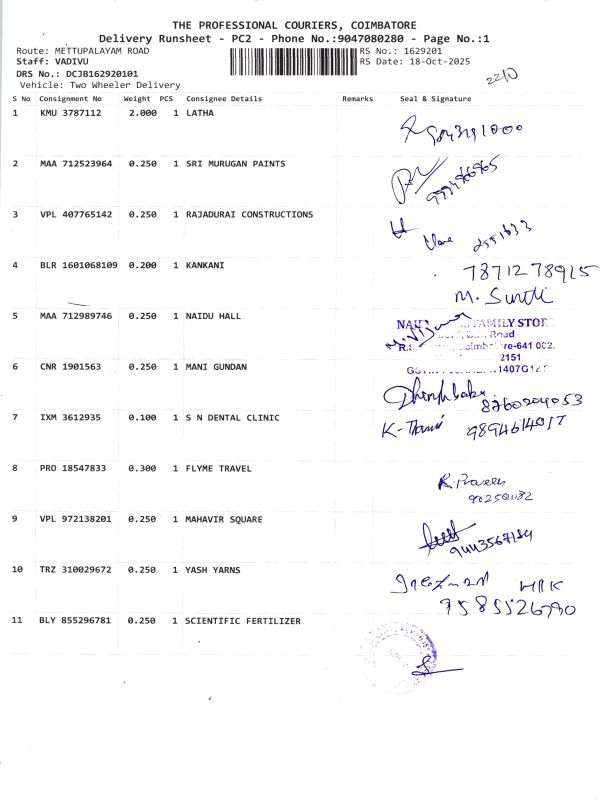 THE PROFESSIONAL COURIERS, COIMBATORE
Delivery Runsheet - PC2 - Phone No.:9047080280 - Page No.:1
Route: METTUPALAYAM ROAD RS No.: 1629201
Staff: VADIVU RS Date: 18-Oct-2025
DRS No.: DCJB162920101
Vehicle: Two Wheeler Delivery
S No Consignment No Weight PCS Consignee Details Remarks Seal & Signature
1 KMU 3787112 2.000 1 LATHA
2 MAA 712523964 0.250 1 SRI MURUGAN PAINTS
3 VPL 407765142 0.250 1 RAJADURAI CONSTRUCTIONS
4 BLR 1601068109 0.200 1 KANKANI 7871278915
5 MAA 712989746 0.250 1 NAIDU HALL
FAMILY STOR
Road
-641 002.
2151
6 CNR 1901563 0.250 1 MANI GUNDAN
8760204053
7 IXM 3612935 0.100 1 S N DENTAL CLINIC 9894614017
8 PRO 18547833 0.300 1 FLYME TRAVEL
9 VPL 972138201 0.250 1 MAHAVIR SQUARE
10 TRZ 310029672 0.250 1 YASH YARNS
9585526790
11 BLY 855296781 0.250 1 SCIENTIFIC FERTILIZER